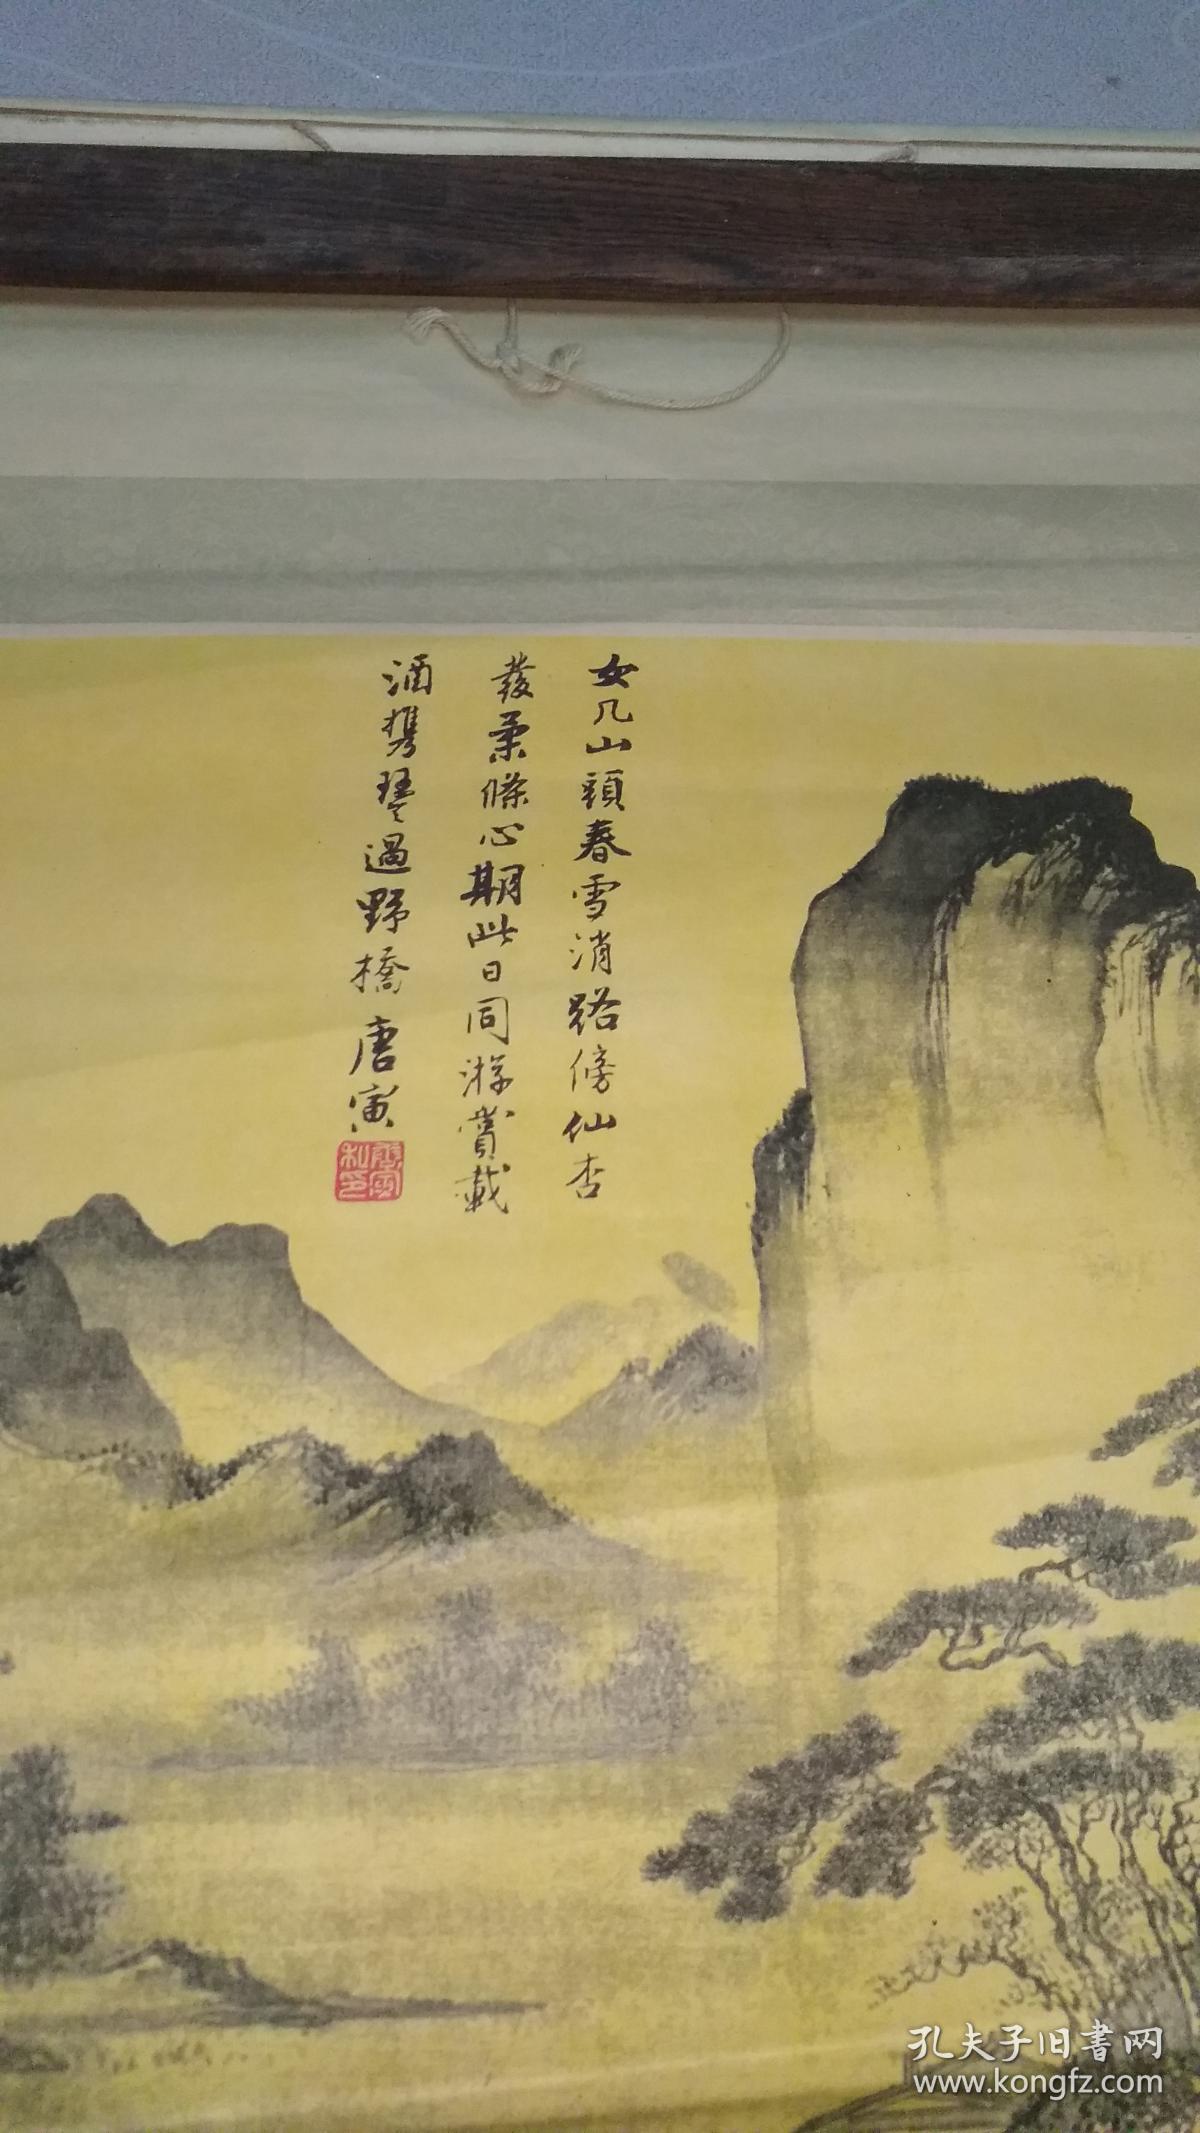 女几山頭春雪消路傍仙杏
發柔條心期此日同游賞載
酒携琴過野橋 唐寅
唐寅私印
孔夫子旧書网
www.kongfz.com